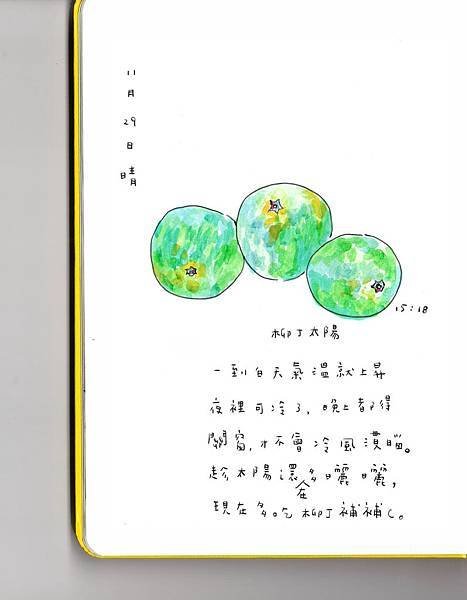 11月29日晴
15:18
柳丁太陽
一到白天氣溫就上昇
夜裡可冷了,晚上都得
關窗,才不會冷風潰腦。
趁太陽還多在曬曬,
現在多吃柳丁補補C。